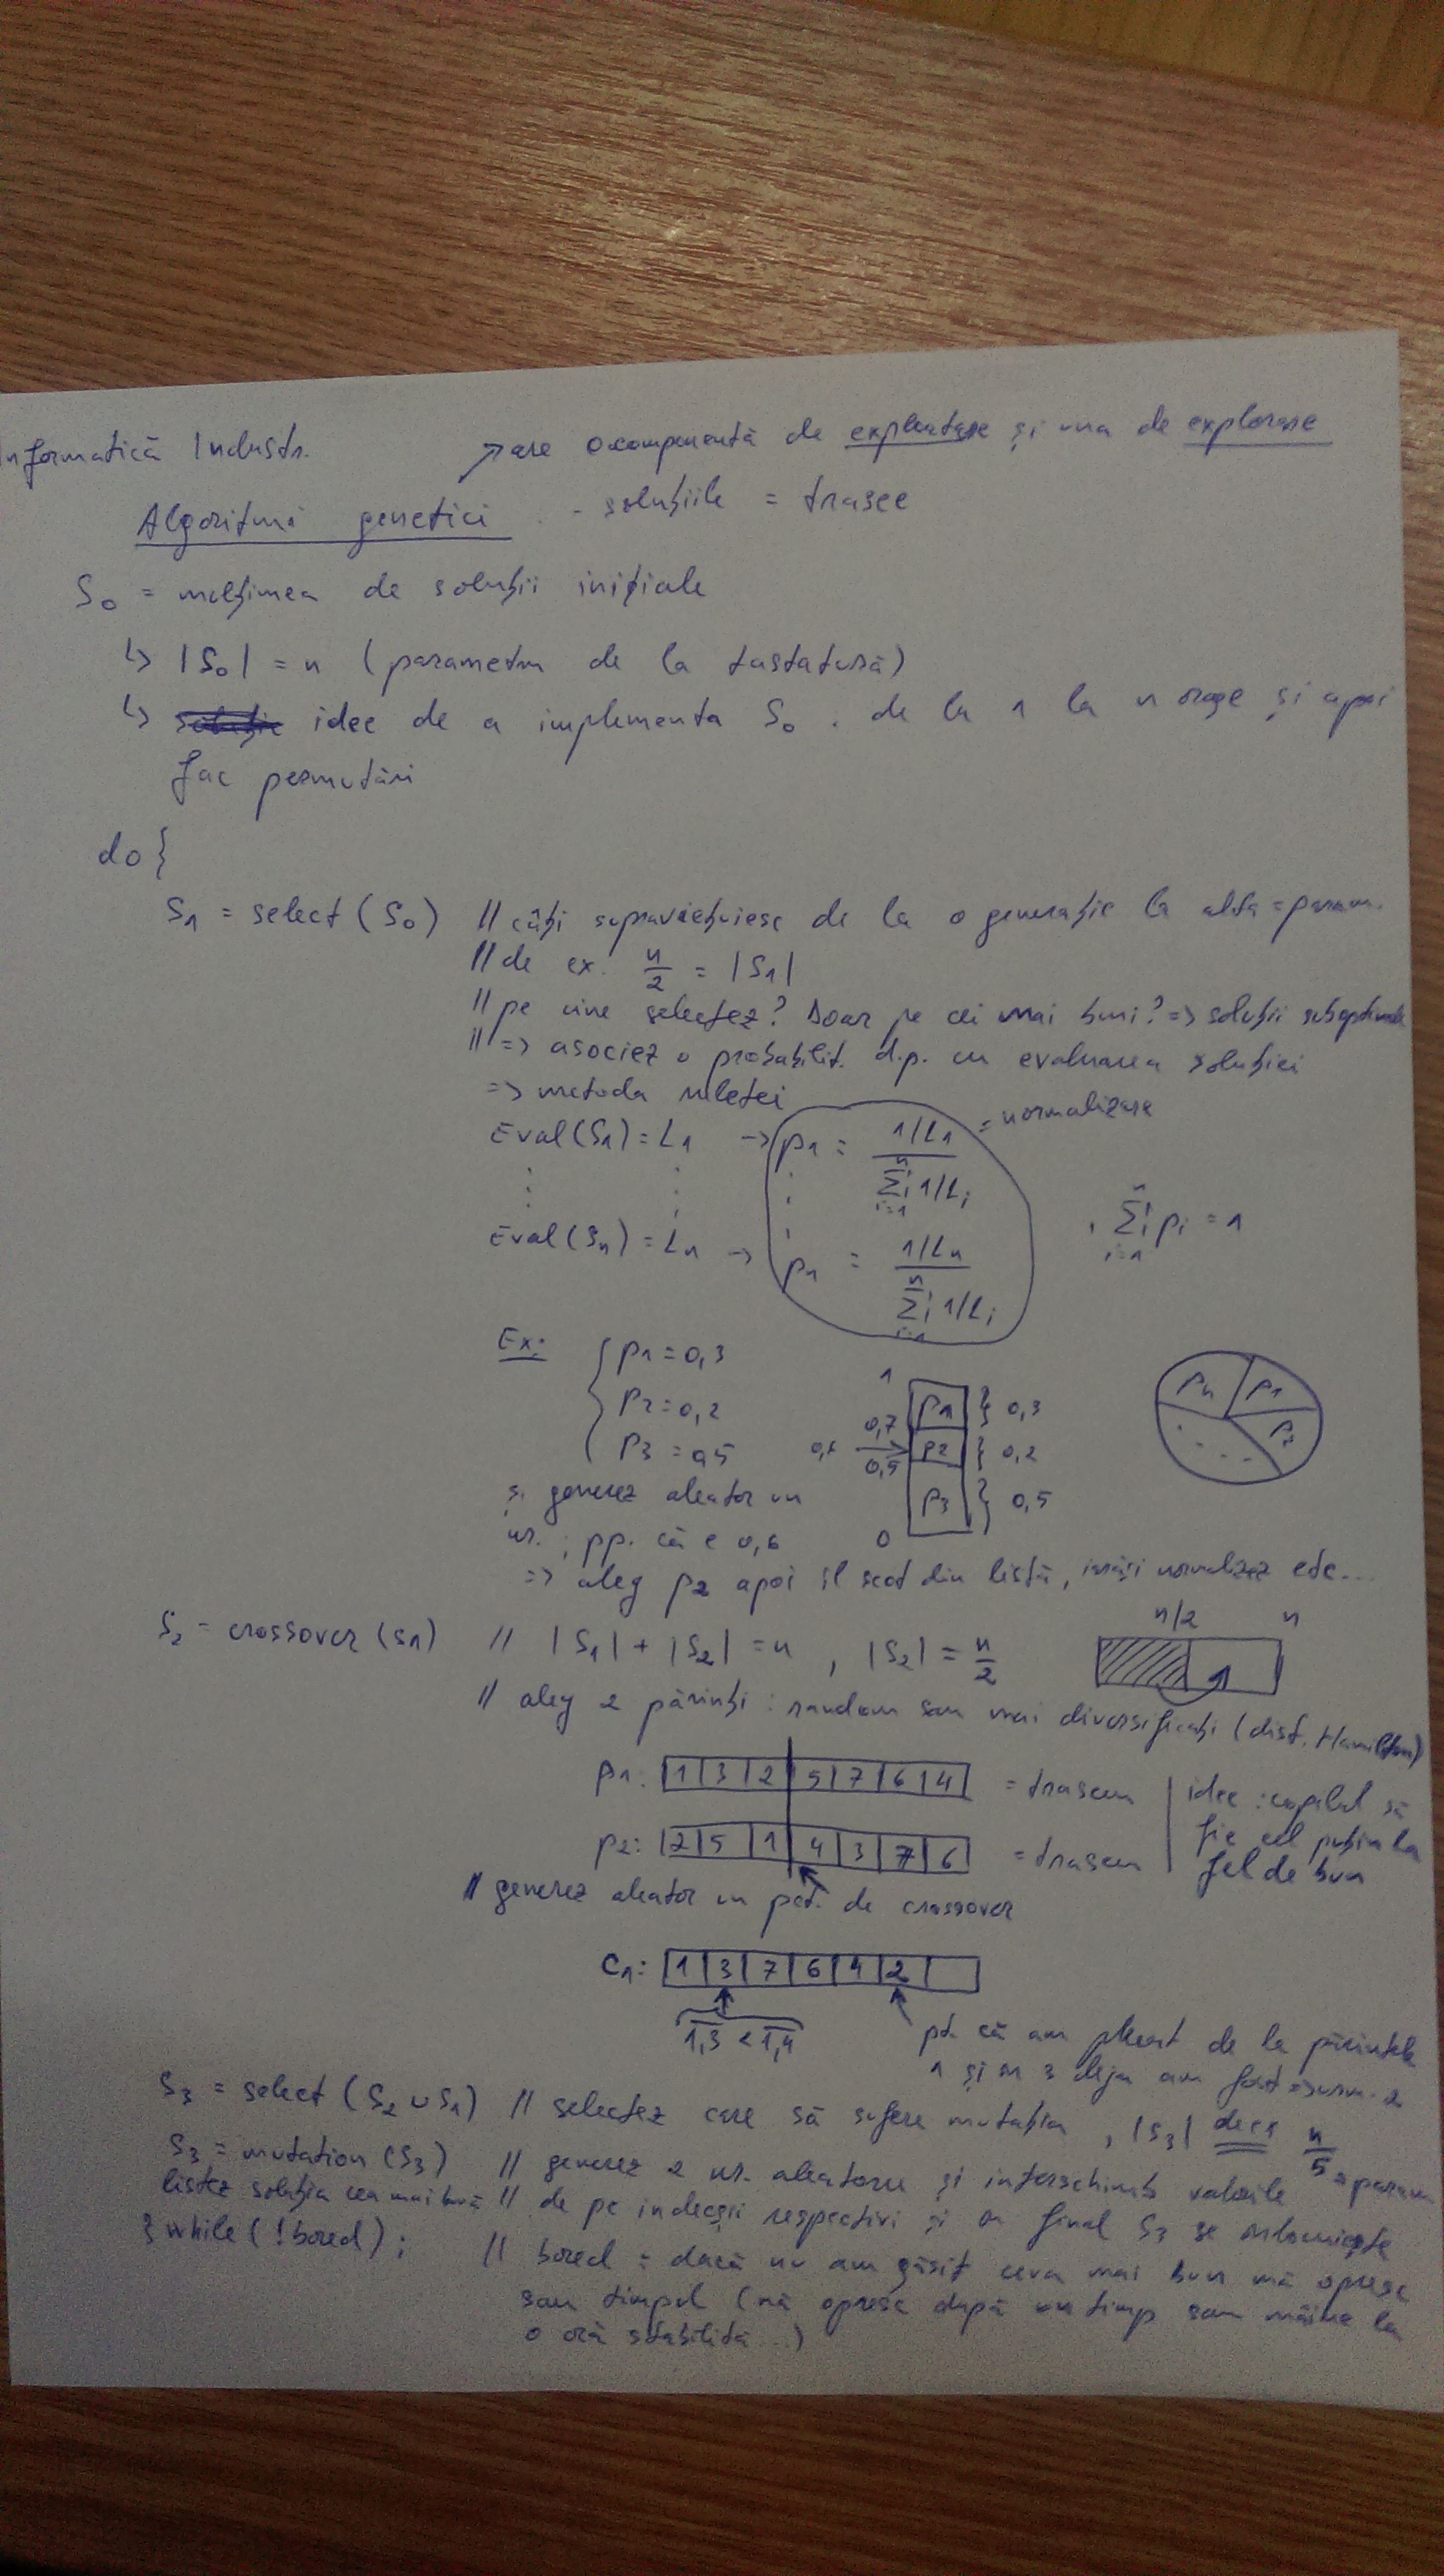 Informatică Industr.
→ are o componentă de exploatare și una de explorare
Algoritmi genetici - soluțiile = trasee
S0 = mulțimea de soluții inițiale
↳ |S0| = n (parametru de la tastatură)
↳ idee de a implementa S0 : de la 1 la n orașe și apoi
fac permutări
do {
S1 = select (S0) // câți supraviețuiesc de la o generație la alta = param.
// de ex. n/2 = |S1|
// pe cine selectez? Doar pe cei mai buni? => soluții suboptimale
// => asociez o probabilit. d.p. cu evaluarea soluției
=> metoda ruletei
Eval(S1) = L1 → p1 = (1/L1) / (∑ i=1 n 1/Li) = normalizare
⋮ ⋮ ⋮
, ∑ i=1 n pi = 1
Eval(Sn) = Ln → pn = (1/Ln) / (∑ i=1 n 1/Li)
Ex: { p1 = 0,3
p2 = 0,2
p3 = 0,5
1 p1 } 0,3
0,7 0,5 p2 } 0,2
p3 } 0,5
0
pn p1
p2
și generez aleator un
nr. ; pp. că e 0,6
=> aleg p2 apoi îl scot din listă, iarăși normalizez etc...
S2 = crossover (S1) // |S1| + |S2| = n , |S2| = n/2
n/2 n
// aleg 2 părinți : random sau mai diversificați (dist. Hamilton)
p1: 1 | 3 | 2 | 5 | 7 | 6 | 4 = traseu
p2: 2 | 5 | 1 | 4 | 3 | 7 | 6 = traseu
idee : copilul să
fie cel puțin la
fel de bun
// generez aleator un pct. de crossover
C1: 1 | 3 | 7 | 6 | 4 | 2 |
1,3 < 1,4
pt. că am plecat de la părintele
1 și în 3 deja am fost => urm. 2
S3 = select (S2 ∪ S1) // selectez care să sufere mutația , |S3| deci n/5 = param
S3 = mutation (S3) // generez 2 nr. aleatorii și interschimb valorile
listez soluția cea mai bună // de pe indecșii respectivi și în final S3 se înlocuiește
} while ( ! bored ) ; // bored : dacă nu am găsit ceva mai bun mă opresc
sau timpul (mă opresc după un timp sau mâine la
o oră stabilită ...)